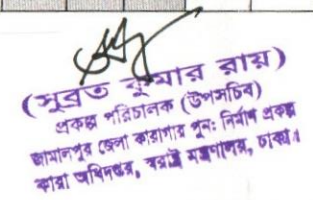 (সুব্রত কুমার রায়)
প্রকল্প পরিচালক (উপসচিব)
জামালপুর জেলা কারাগার পুন: নির্মাণ প্রকল্প
কারা অধিদপ্তর, স্বরাষ্ট্র মন্ত্রণালয়, ঢাকা।